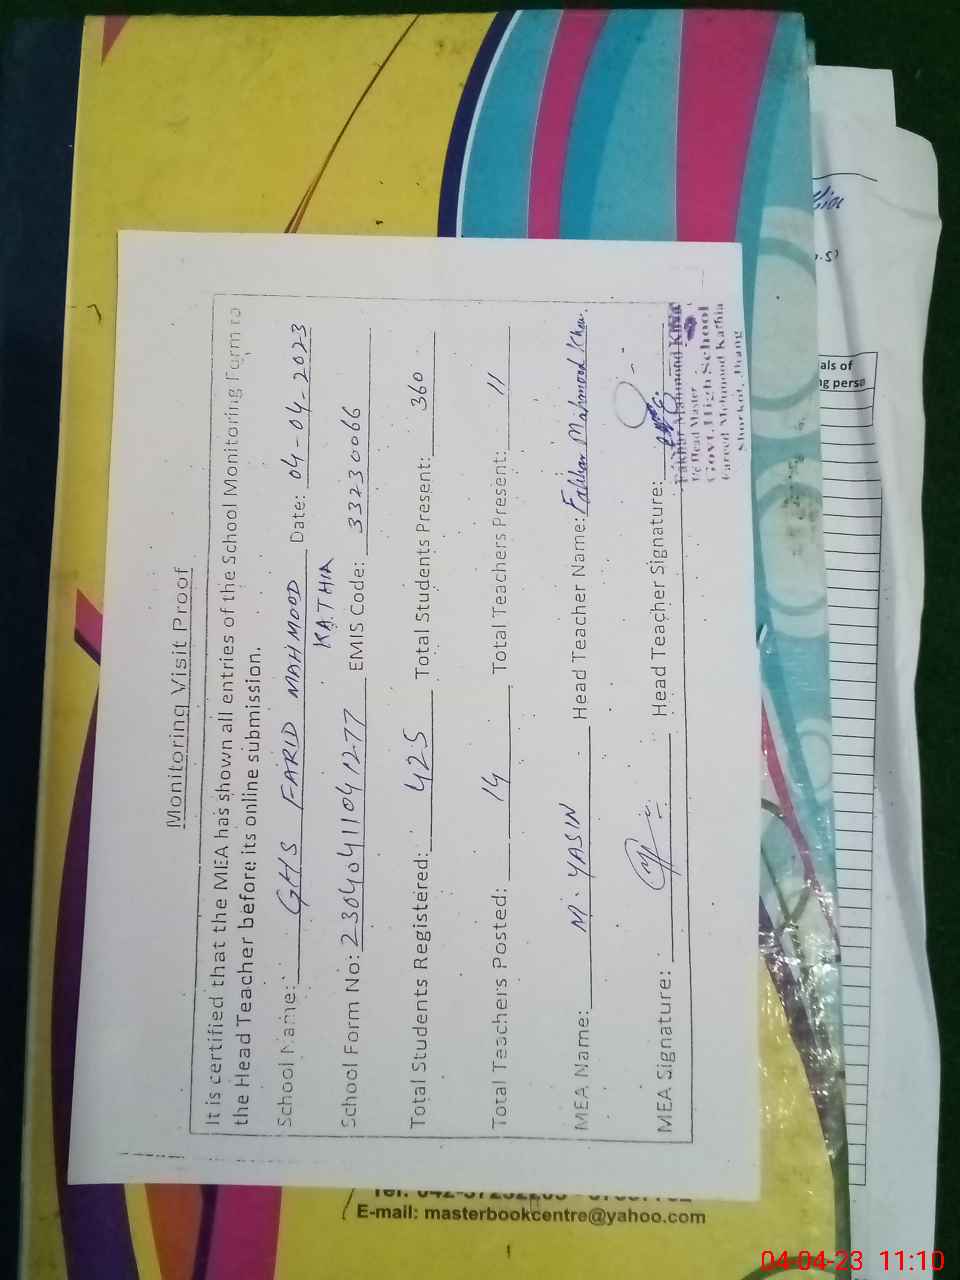 Monitoring Visit Proof
It is certified that the MEA has shown all entries of the School Monitoring Form to
the Head Teacher before its online submission.
School Name: GHS FARID MAHMOOD KATHIA Date: 04-04-2023
School Form No: 23040411041277 EMIS Code: 33230066
Total Students Registered: 425 Total Students Present: 360
Total Teachers Posted: 14 Total Teachers Present: 11
MEA Name: M. YASIN Head Teacher Name: Fakhar Mahmood Khan
MEA Signature: Head Teacher Signature:
Fakhar Mahmood
Head Master
Govt. High School
Fareed Mehmood Kathia
Shorkot, Jhang
als of
ng perso
E-mail: masterbookcentre@yahoo.com
04-04-23 11:10